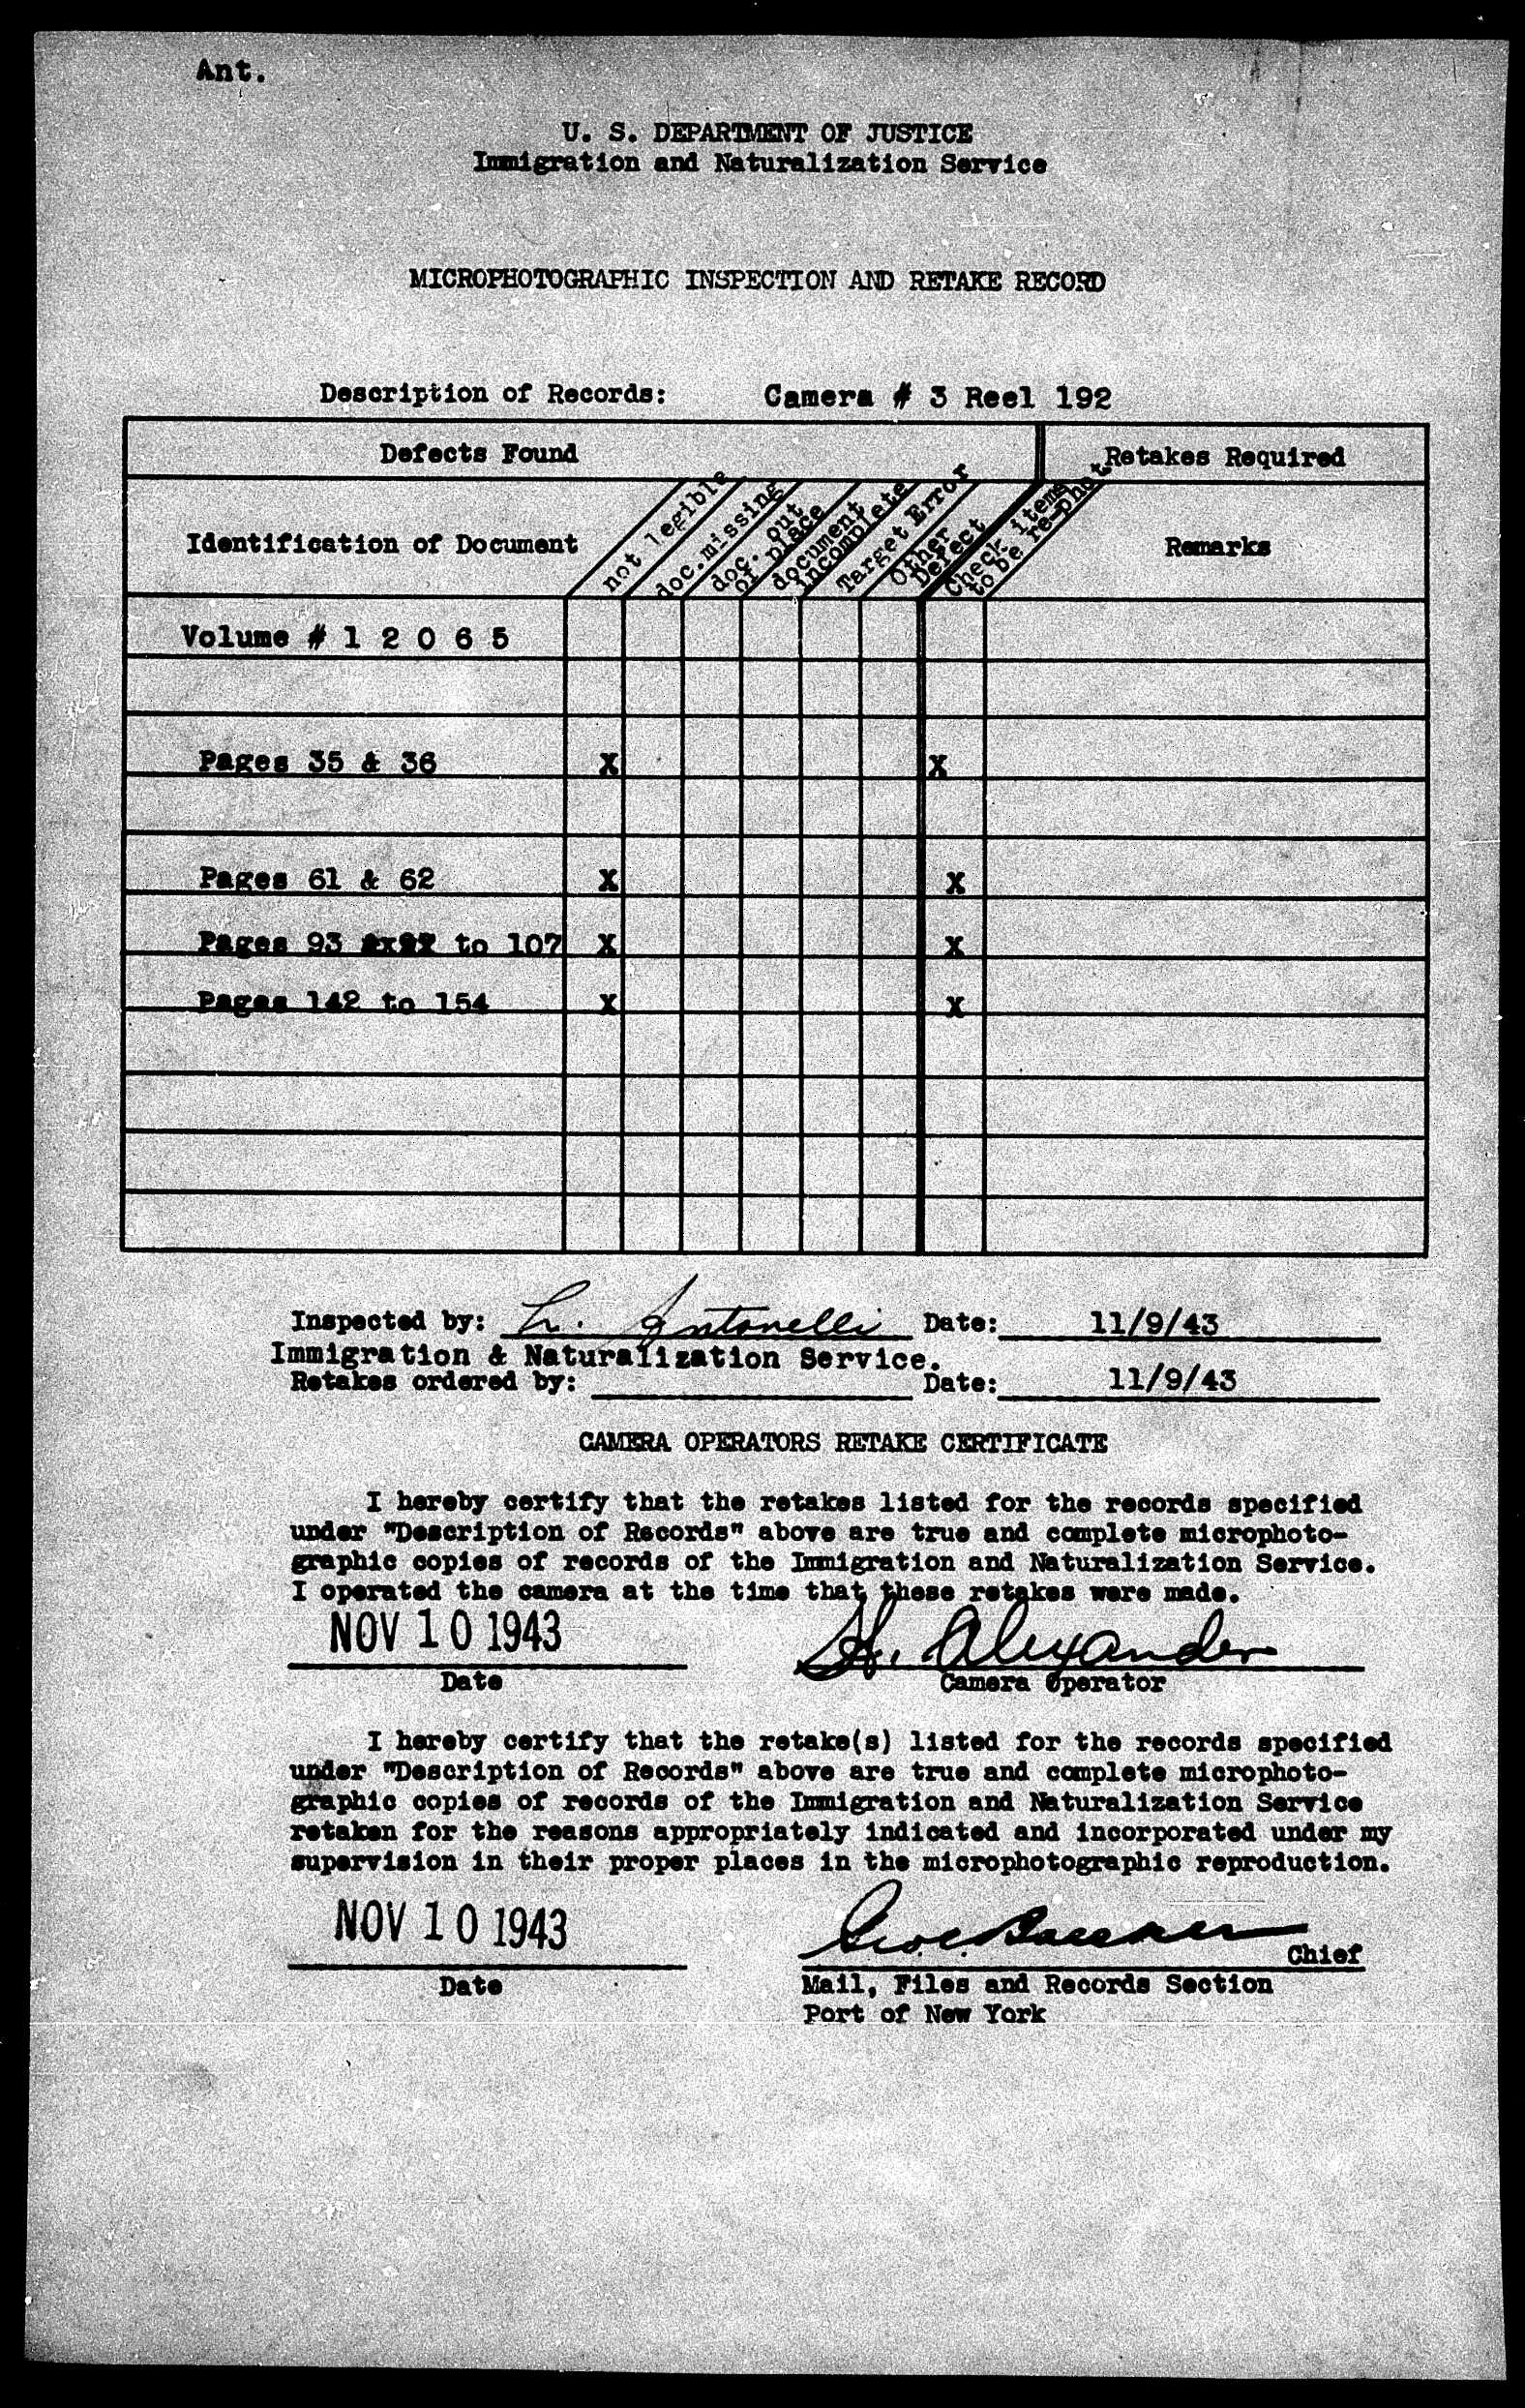 Ant.
U. S. DEPARTMENT OF JUSTICE
Immigration and Naturalization Service
MICROPHOTOGRAPHIC INSPECTION AND RETAKE RECORD
Description of Records: Camera # 3 Reel 192
Defects Found Retakes Required
Identification of Document not legible doc.missing doc. out of place document incomplete Target Error Other Defect Check items to be re-phot Remarks
Volume # 1 2 0 6 5
Pages 35 & 36 X X
Pages 61 & 62 X X
Pages 93 to 107 X X
Pages 142 to 154 X X
Inspected by: L. Antonelli Date: 11/9/43
Immigration & Naturalization Service.
Retakes ordered by: Date: 11/9/43
CAMERA OPERATORS RETAKE CERTIFICATE
I hereby certify that the retakes listed for the records specified
under "Description of Records" above are true and complete microphoto-
graphic copies of records of the Immigration and Naturalization Service.
I operated the camera at the time that these retakes were made.
NOV 10 1943 H. Alexander
Date Camera Operator
I hereby certify that the retake(s) listed for the records specified
under "Description of Records" above are true and complete microphoto-
graphic copies of records of the Immigration and Naturalization Service
retaken for the reasons appropriately indicated and incorporated under my
supervision in their proper places in the microphotographic reproduction.
NOV 10 1943 Chief
Date Mail, Files and Records Section
Port of New York